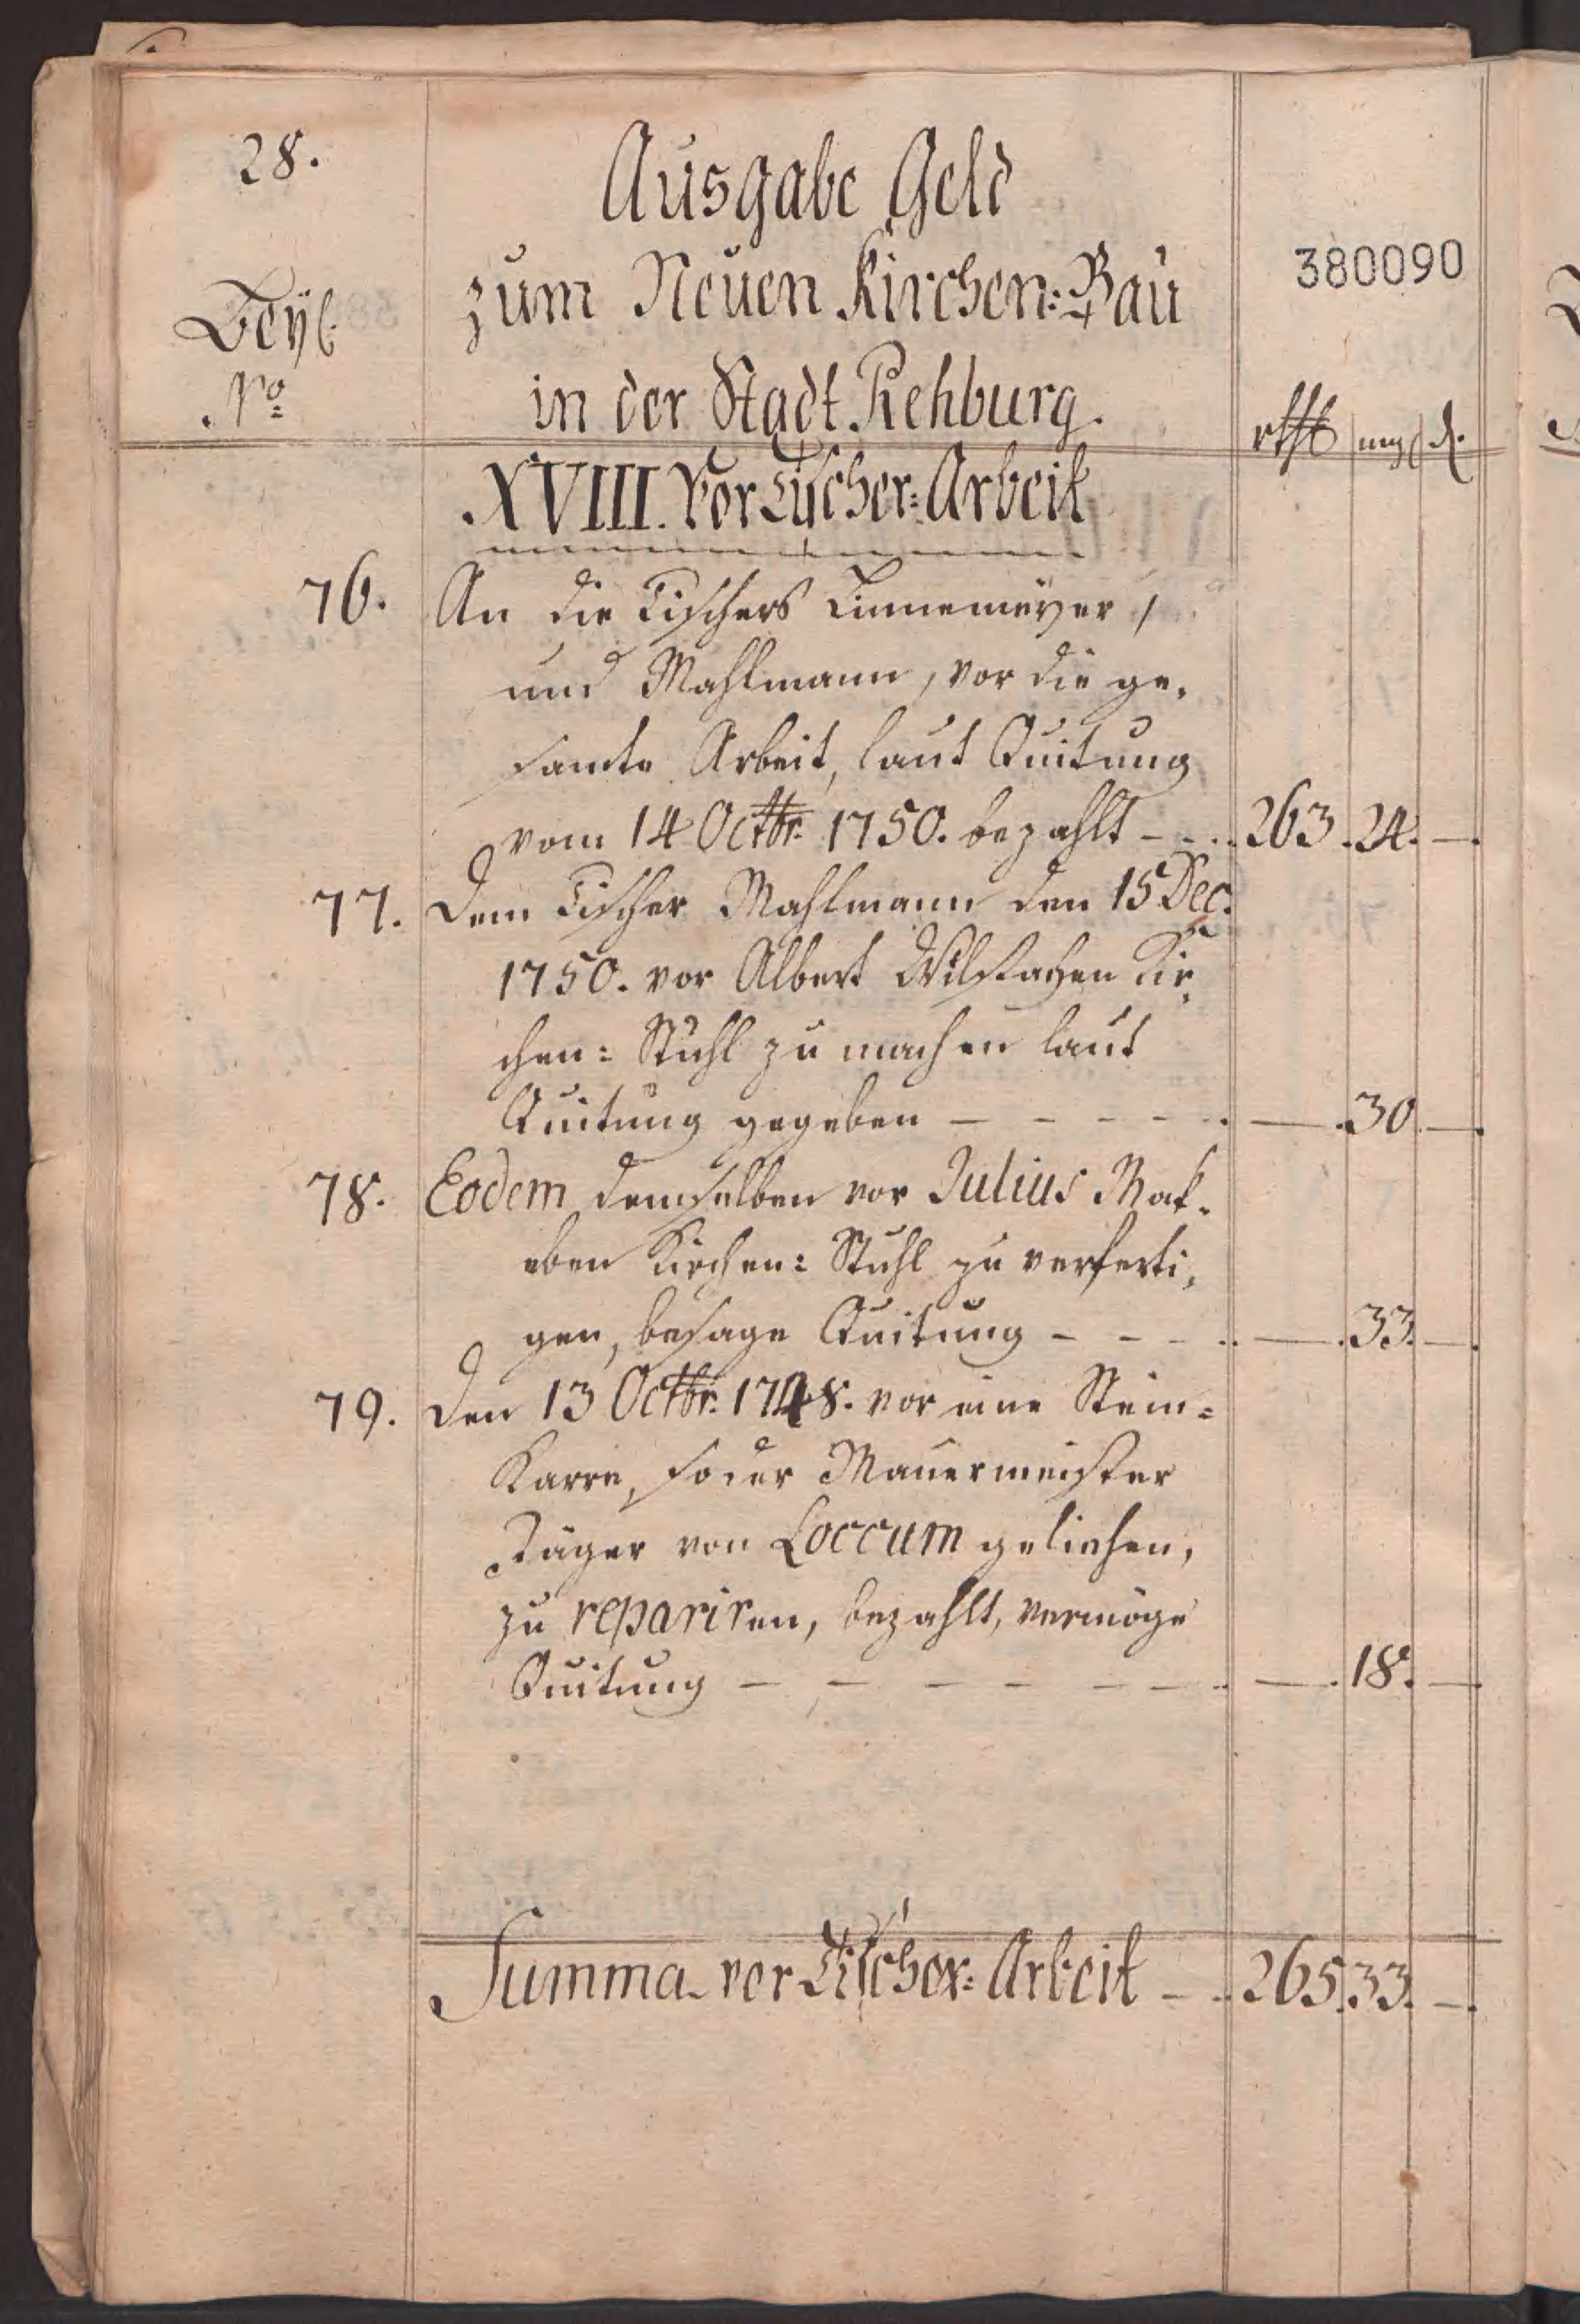 28.
Ausgabe Geld
380090
zum Neuen Kirchen-Bau
Beyl.
No
in der Stadt Rehburg.
rthl mgl d.
XVIII. Vor Tischer-Arbeit
76. An die Tischers Linnemeyer,
und Mahlmann, vor die ge-
samte Arbeit, laut Quitung
vom 14 Octbr. 1750. bezahlt - - 263. 24. -
77. Dem Tischer Mahlmann den 15 Dec.
1750. vor Albert Kir-
chen: Stuhl zu machen laut
Quitung gegeben - - - - - - . 30. -
78. Eodem demselben vor Julius Mak-
eben Kirchen: Stuhl zu verferti-
gen, besage Quitung - - - - - . 33. -
79. Den 13 Octbr. 1748. vor eine Stein-
Karre, so der Mauermeister
Jäger von Loccum geliehen,
zu repariren, bezahlt, vermöge
Quitung - - - - - - - . 18. -
Summa vor Tischer-Arbeit - - 265. 33. -